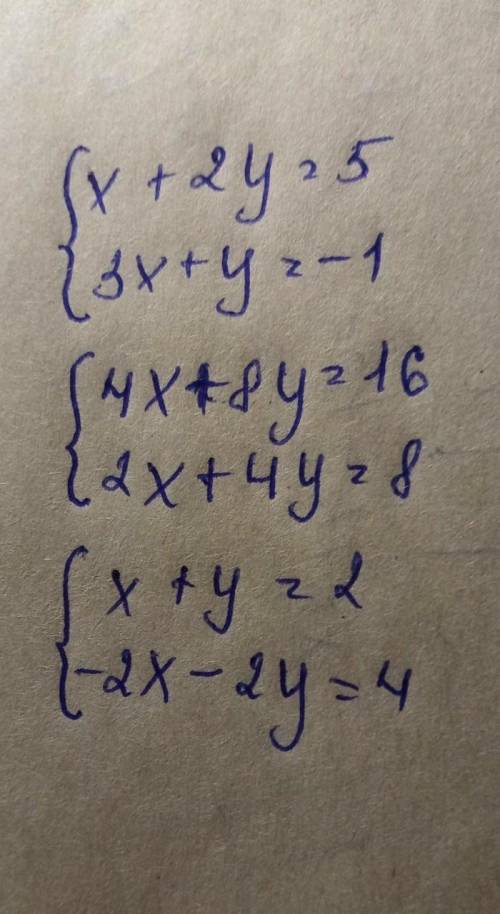 x + 2y = 5
3x + y = -1
4x + 8y = 16
2x + 4y = 8
x + y = 2
-2x - 2y = 4